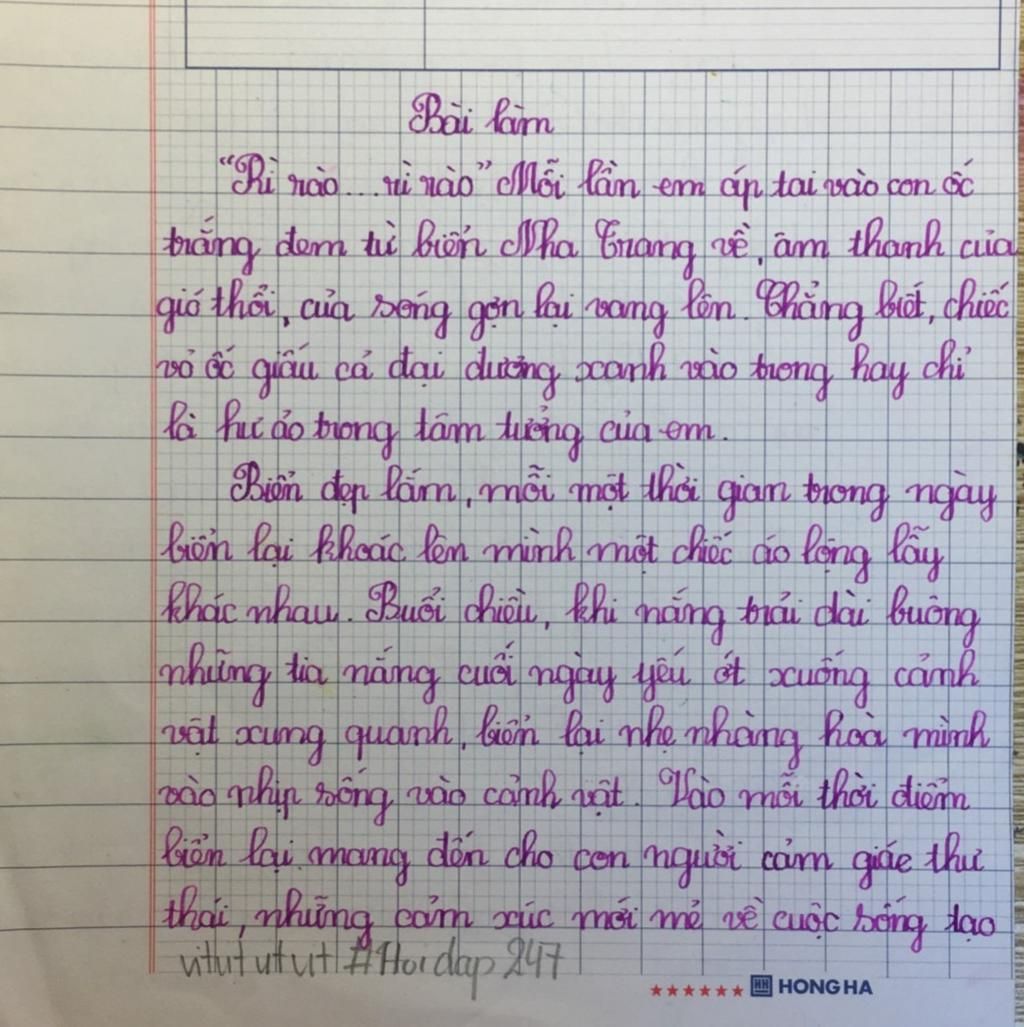 Bài làm
"Rì rào...rì rào" Mỗi lần em áp tai vào con ốc
trắng đem từ biển Nha Trang về, âm thanh của
gió thổi, của sóng gợn lại vang lên. Chẳng biết, chiếc
vỏ ốc giấu cả đại dương xanh vào trong hay chỉ
là hư ảo trong tâm tưởng của em.
Biển đẹp lắm, mỗi một thời gian trong ngày
biển lại khoác lên mình một chiếc áo lộng lẫy
khác nhau. Buổi chiều, khi nắng trải dài buông
những tia nắng cuối ngày yếu ớt xuống cảnh
vật xung quanh, biển lại nhẹ nhàng hoà mình
vào nhịp sống vào cảnh vật. Vào mỗi thời điểm
biển lại mang đến cho con người cảm giác thư
thái, những cảm xúc mới mẻ về cuộc sống tạo
vitutututut #Hoidap247
HH HONG HA